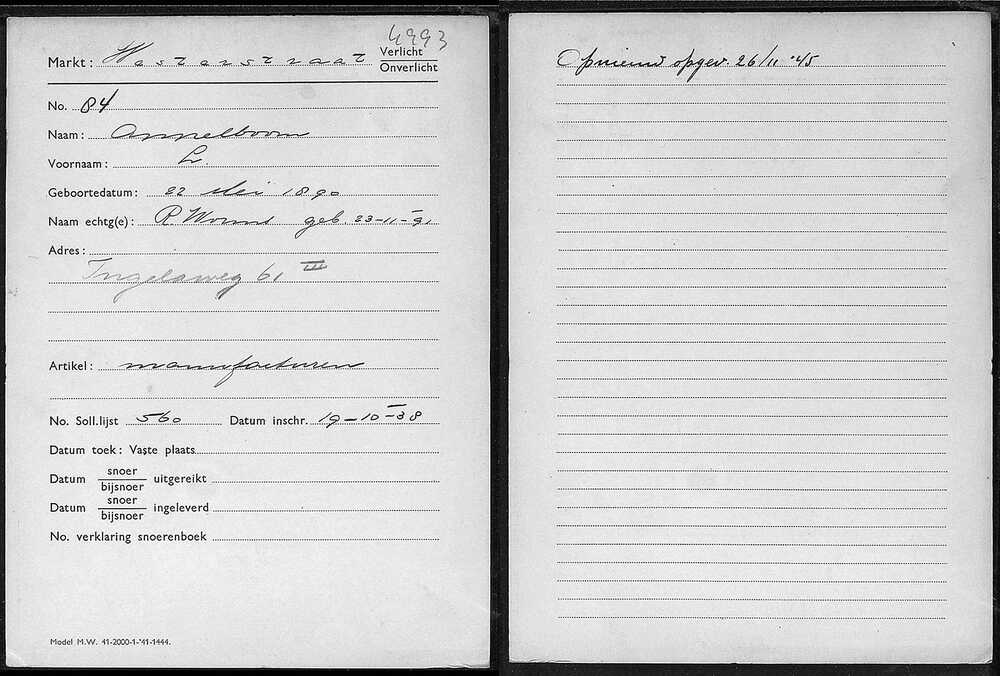 4993
Markt: Westerstraat
Verlicht
Onverlicht
No. 84
Naam: Appelboom
Voornaam: L.
Geboortedatum: 22 Mei 1890
Naam echtg(e): R. Worms geb. 23-11-91
Adres:
Ingelaweg 61 III
Artikel: manufacturen
No. Soll.lijst 560 Datum inschr. 19-10-38
Datum toek: Vaste plaats
Datum snoer
bijsnoer uitgereikt
Datum snoer
bijsnoer ingeleverd
No. verklaring snoerenboek
Model M.W. 41-2000-1-'41-1444.
Opnieuw opgev. 26/11 '45